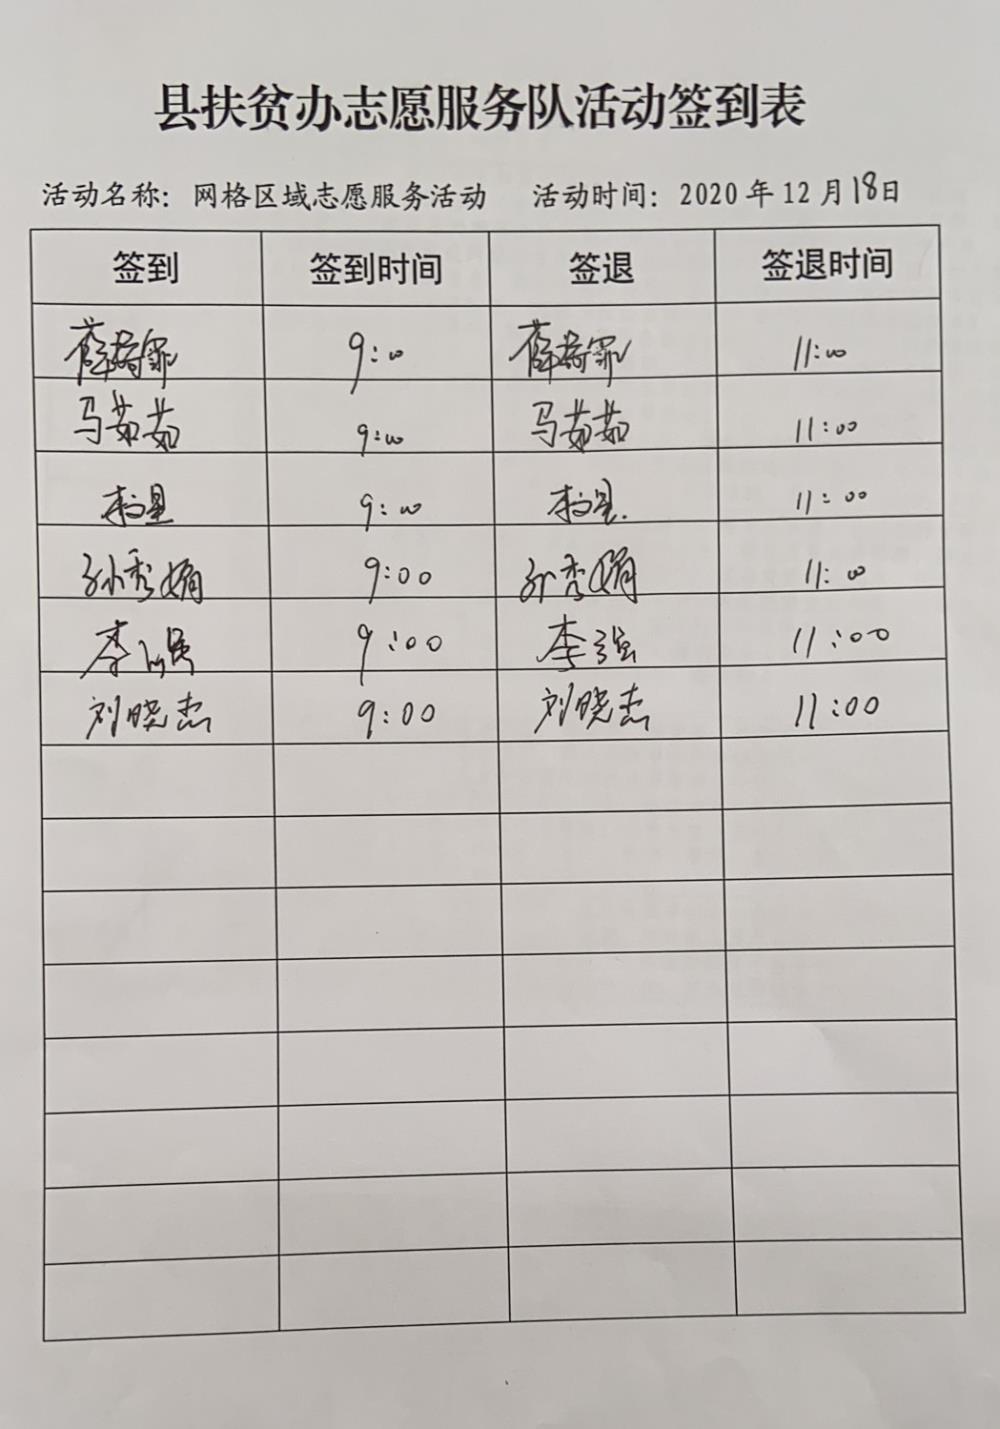 县扶贫办志愿服务队活动签到表
活动名称：网格区域志愿服务活动 活动时间：2020年12月18日
签到 签到时间 签退 签退时间
9:00 11:00
马茹茹 9:00 马茹茹 11:00
9:00 11:00
孙秀娟 9:00 孙秀娟 11:00
李强 9:00 李强 11:00
刘晓杰 9:00 刘晓杰 11:00